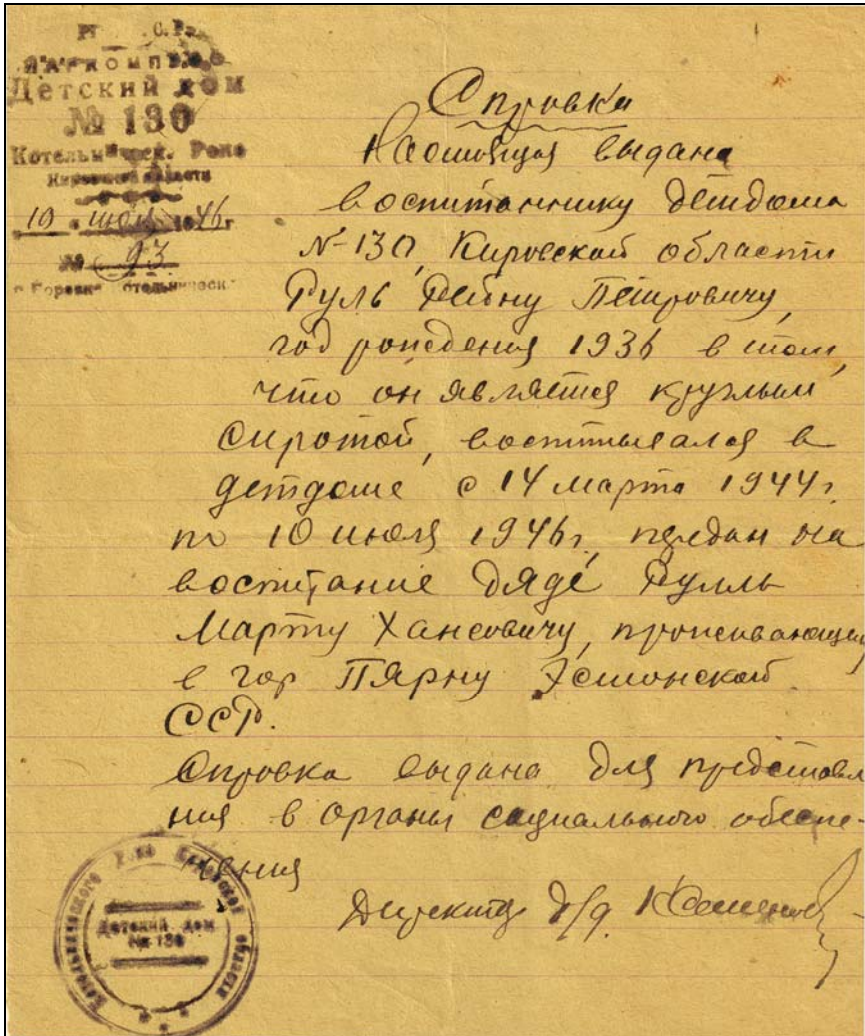 Детский дом
№ 130
Котельническ. Роно
Кировской области
10 июля 1946 г
№ 93
Справка
Настоящая выдана
воспитаннику детдома
№ 130, Кировской области
Руль Рейну Петровичу,
год рождения 1936 в том,
что он является круглым
сиротой, воспитывался в
детдоме с 14 марта 1944 г.
по 10 июля 1946 г, передан на
воспитание дяде Рулль
Марту Хансовичу, проживающему
в гор Пярну Эстонской
ССР.
Справка выдана для представле
ния в органы социального обеспе-
чения
Директор д/д
Котельнического Роно Кировской области
Детский дом
№ 130